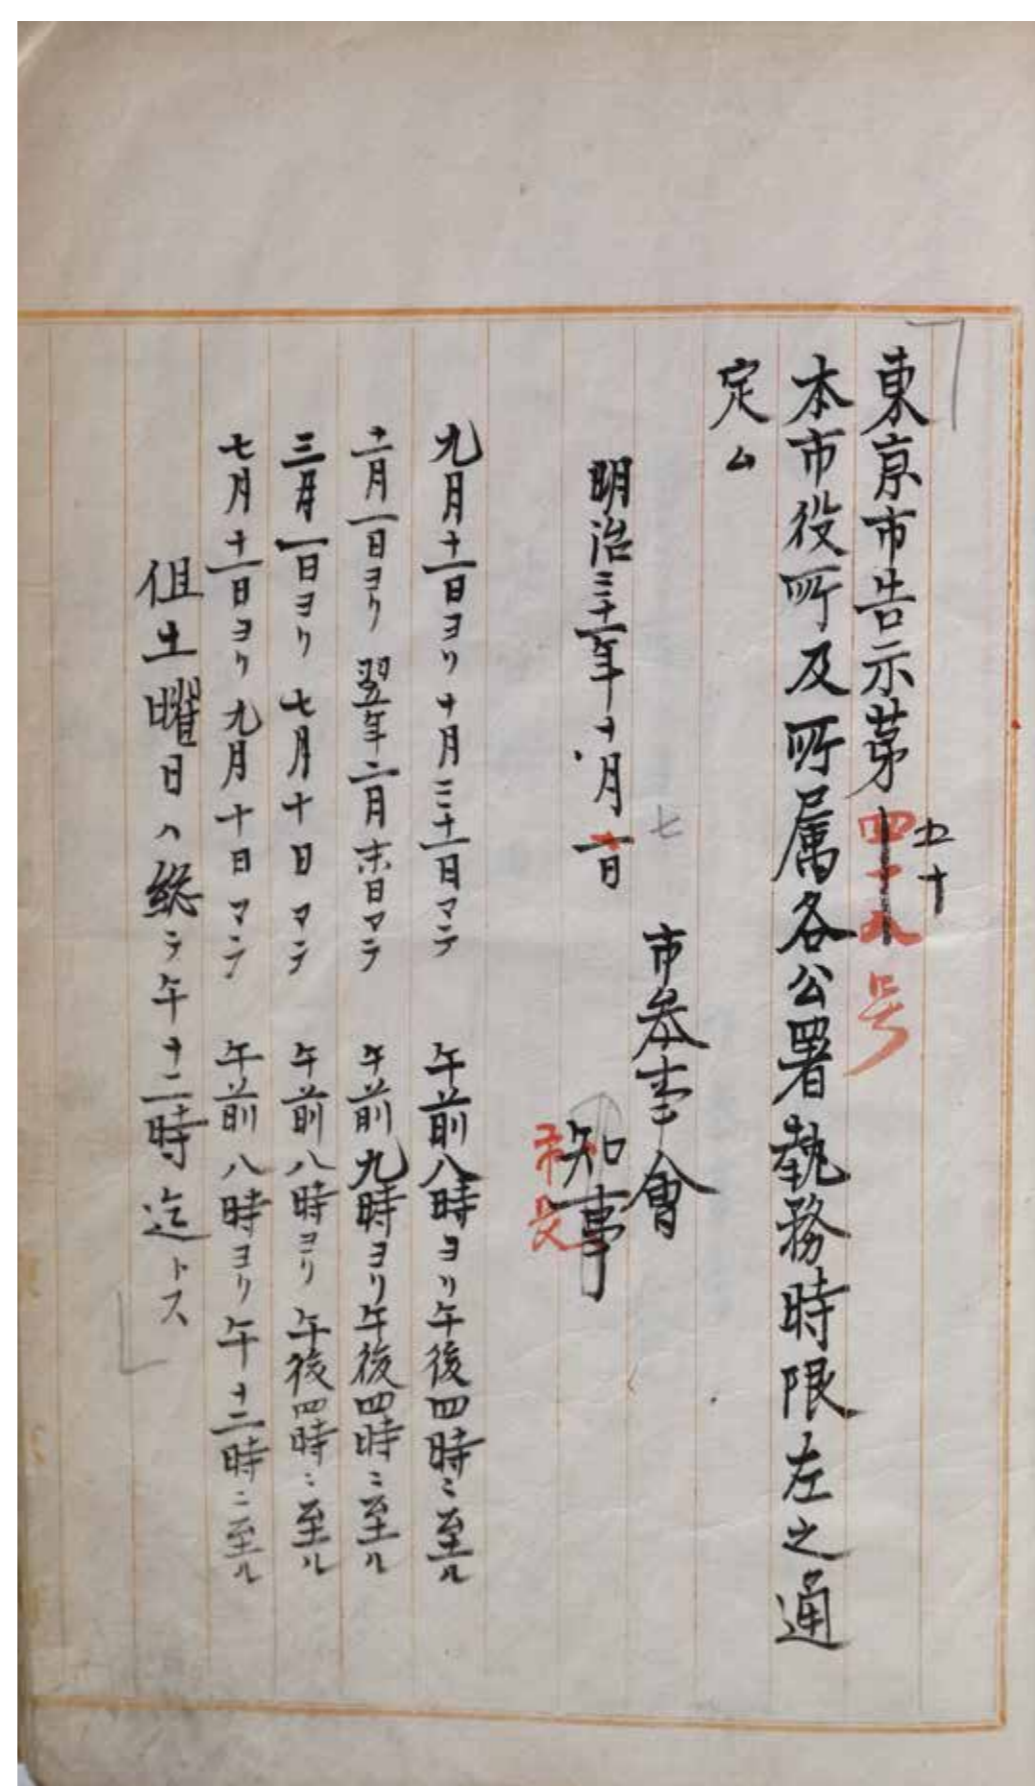 東京市告示第四十九号
五十
本市役所及所属各公署執務時限左之通
定ム
七
市参事會
明治三十一年十月一日
知事
市長
九月十一日ヨリ十月三十一日マテ 午前八時ヨリ午後四時ニ至ル
十一月一日ヨリ翌年二月末日マテ 午前九時ヨリ午後四時ニ至ル
三月一日ヨリ七月十日マテ 午前八時ヨリ午後四時ニ至ル
七月十一日ヨリ九月十日マテ 午前八時ヨリ午十二時ニ至ル
但土曜日ハ総テ午十二時迄トス